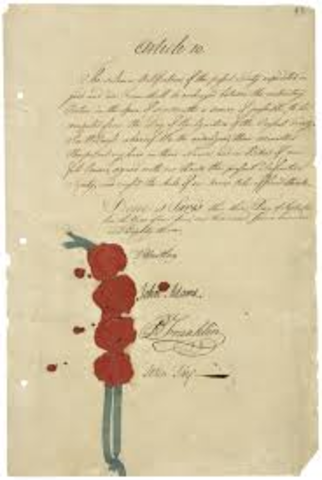 Article 10.
The solemn Ratifications of the present Treaty expedited in
good and due Form shall be exchanged between the contracting
Parties in the Space of Six Months or sooner if possible to be
computed from the Day of the Signature of the present Treaty.
In Witness whereof we the undersigned their Ministers
Plenipotentiary have in their Name and in Virtue of our
Full Powers signed with our Hands the present Definitive
Treaty, and caused the Seals of our Arms to be affix'd thereto.
Done at Paris, this third Day of September,
In the Year of our Lord one thousand seven hundred
and Eighty three.
D Hartley
John Adams.
B Franklin
John Jay